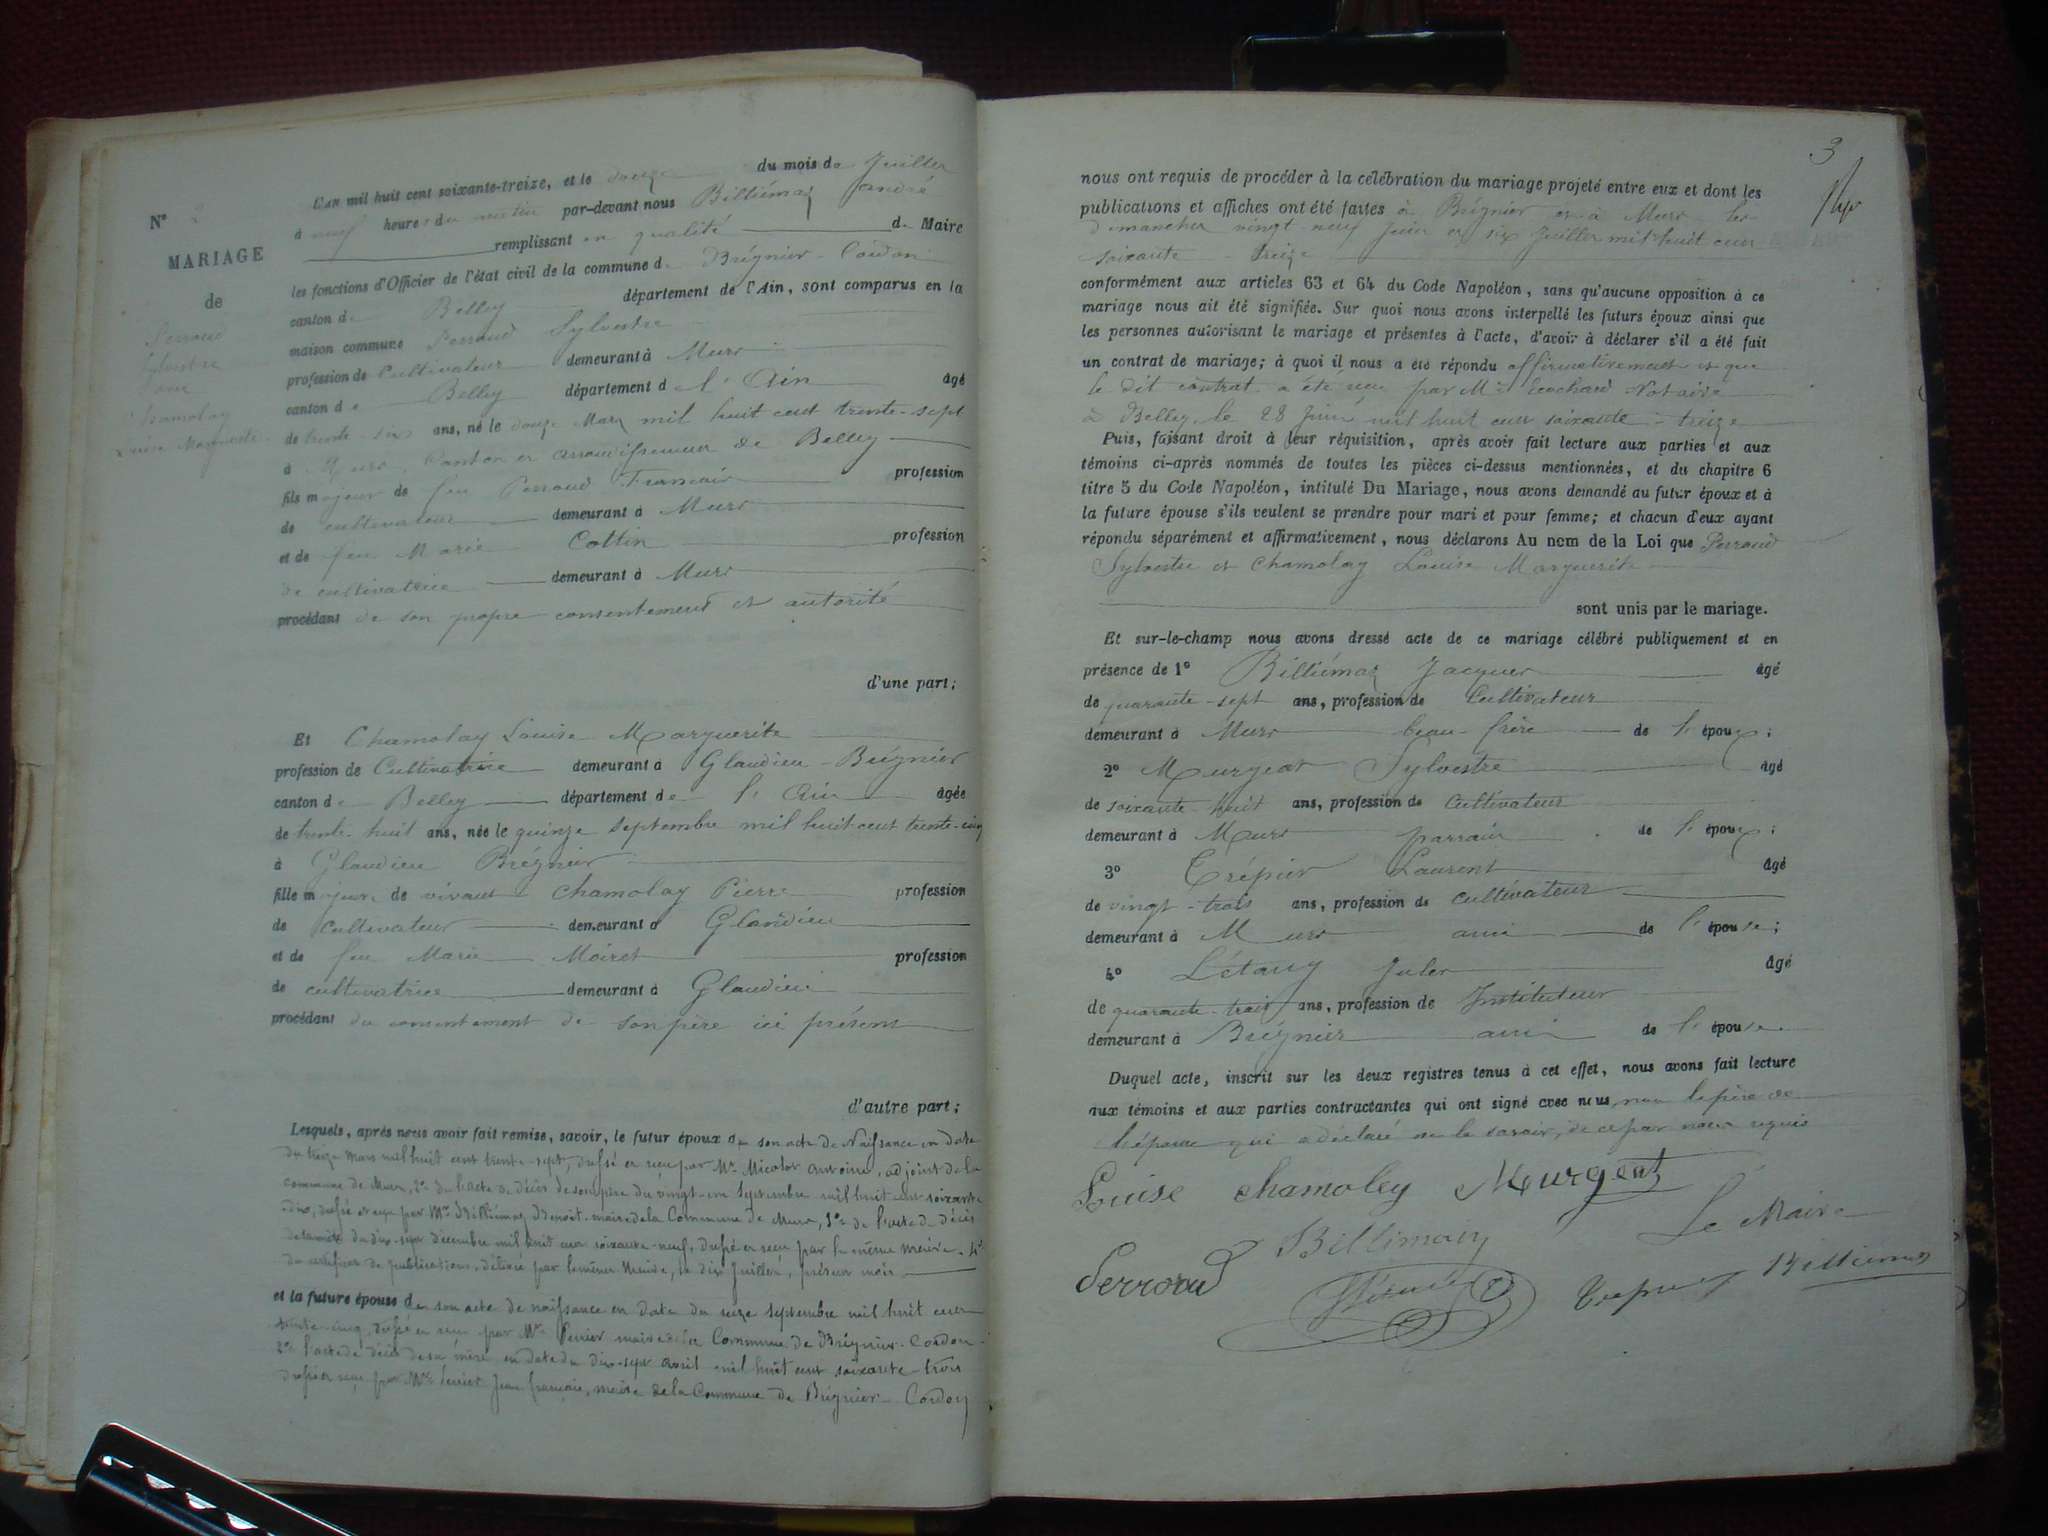 N° 2
MARIAGE
de
Perroud
Sylvestre
Chamolay
Louise Marguerite
L'AN mil huit cent soixante-treize, et le douze du mois de Juillet
à neuf heures du matin par-devant nous Billiémaz André
remplissant en qualité de Maire
les fonctions d'Officier de l'état civil de la commune de Brégnier-Cordon
canton de Belley département de l'Ain, sont comparus en la
maison commune Perroud Sylvestre
profession de Cultivateur demeurant à Murs
canton de Belley département de l'Ain âgé
de trente-six ans, né le douze Mars mil huit cent trente-sept
à Murs, Canton et arrondissement de Belley
fils majeur de feu Perroud François profession
de cultivateur demeurant à Murs
et de feu Marie Cottin profession
de cultivatrice demeurant à Murs
procédant de son propre consentement et autorité
d'une part;
Et Chamolay Louise Marguerite
profession de Cultivatrice demeurant à Glandieu-Brégnier
canton de Belley département de l'Ain âgée
de trente-huit ans, née le quinze septembre mil huit cent trente-cinq
à Glandieu Brégnier
fille majeure de vivant Chamolay Pierre profession
de cultivateur demeurant à Glandieu
et de feu Marie Moiret profession
de cultivatrice demeurant à Glandieu
procédant du consentement de son père ici présent
d'autre part;
Lesquels, après nous avoir fait remise, savoir, le futur époux de son acte de Naissance en date
du treize mars mil huit cent trente-sept, dressé et reçu par Mr Micolot Antoine, adjoint de la
commune de Murs, 2° de l'acte de décès de son père du vingt-un septembre mil huit cent soixante
dressé et reçu par Mr Billiémaz Benoit maire de la Commune de Murs, 3° de l'acte de décès
de sa mère du dix-sept décembre mil huit cent soixante-neuf, dressé et reçu par le même maire, 4°
du certificat de publications, délivré par le même Maire, le dix Juillet, présent mois
et la future épouse de son acte de naissance en date du seize septembre mil huit cent
trente-cinq, dressé et reçu par Mr Perrier maire de la Commune de Brégnier-Cordon
2° l'acte de décès de sa mère en date du dix-sept avril mil huit cent soixante-trois
dressé et reçu par Mr Perrier Jean François, maire de la Commune de Brégnier-Cordon
3
nous ont requis de procéder à la célébration du mariage projeté entre eux et dont les
publications et affiches ont été faites à Brégnier et à Murs les
dimanches vingt neuf Juin et six Juillet mil huit cent
soixante-treize
conformément aux articles 63 et 64 du Code Napoléon, sans qu'aucune opposition à ce
mariage nous ait été signifiée. Sur quoi nous avons interpellé les futurs époux ainsi que
les personnes autorisant le mariage et présentes à l'acte, d'avoir à déclarer s'il a été fait
un contrat de mariage; à quoi il nous a été répondu affirmativement et que
le dit contrat a été reçu par Me Ecochard Notaire
à Belley, le 28 Juin mil huit cent soixante-treize
Puis, faisant droit à leur réquisition, après avoir fait lecture aux parties et aux
témoins ci-après nommés de toutes les pièces ci-dessus mentionnées, et du chapitre 6
titre 5 du Code Napoléon, intitulé Du Mariage, nous avons demandé au futur époux et à
la future épouse s'ils veulent se prendre pour mari et pour femme; et chacun d'eux ayant
répondu séparément et affirmativement, nous déclarons Au nom de la Loi que Perroud
Sylvestre et Chamolay Louise Marguerite
sont unis par le mariage.
Et sur-le-champ nous avons dressé acte de ce mariage célébré publiquement et en
présence de 1° Billiémaz Jacques âgé
de quarante-sept ans, profession de Cultivateur
demeurant à Murs beau-frère de l'époux;
2° Murgeat Sylvestre âgé
de soixante-huit ans, profession de cultivateur
demeurant à Murs parrain de l'époux;
3° Trépier Laurent âgé
de vingt-trois ans, profession de cultivateur
demeurant à Murs ami de l'épouse;
4° Létang Jules âgé
de quarante-trois ans, profession de Instituteur
demeurant à Brégnier ami de l'épouse.
Duquel acte, inscrit sur les deux registres tenus à cet effet, nous avons fait lecture
aux témoins et aux parties contractantes qui ont signé avec nous, non le père de
l'épouse qui a déclaré ne le savoir, de ce par nous requis
Louise chamoley Murgeat
Le Maire
Perroud
Billiémaz